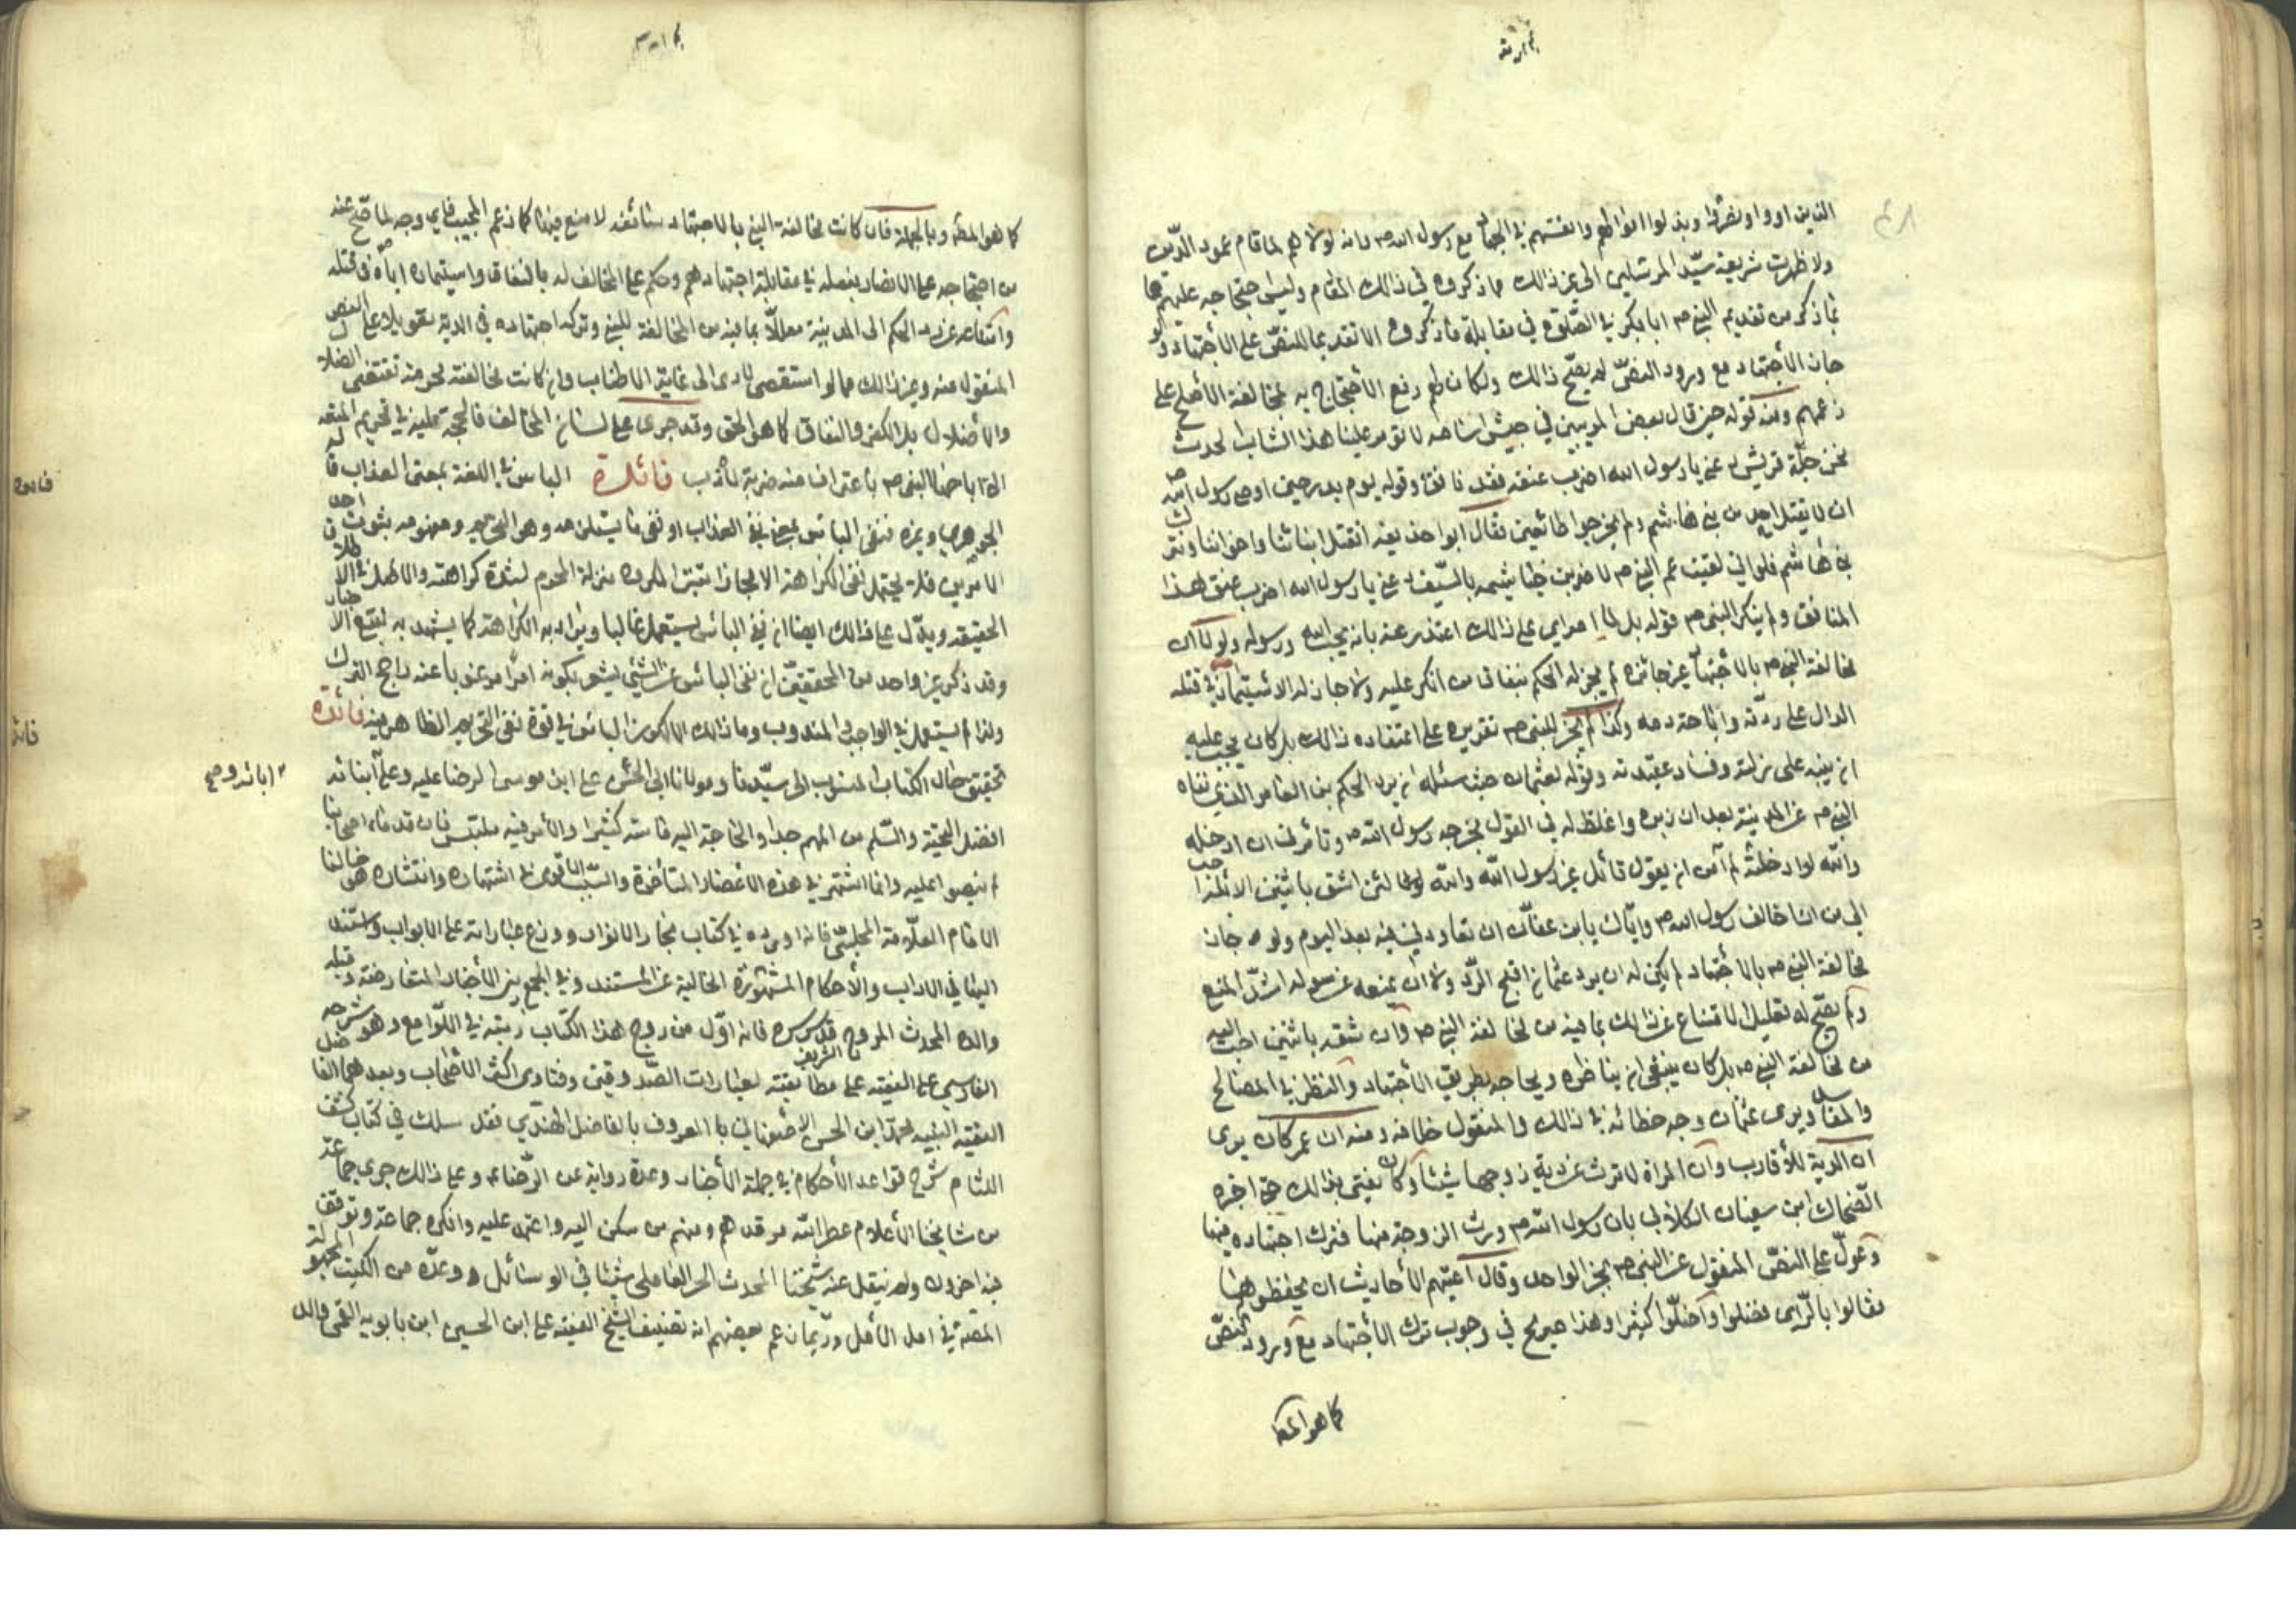 الذين اووا ونصروا وبذلوا اموالهم وانفسهم في الجهاد مع رسول الله ص وانه لولا هم لما قام عمود الدين
ولا ظهرت شريعة سيد المرسلين الى غير ذالك مما ذكروه في ذالك المقام وليس احتجاجه عليهم
بما ذكر من تقديم النبي ص ابا بكر في الصلوة في مقابلة ما ذكروه الا تقديما للنص على الأجتهاد ولو
جاز الأجتهاد مع ورود النص لم يصح ذالك ولكان لهم دفع الأحتجاج به بمخالفة الأصلح على
زعمهم ومنه قوله حين قال بعض في جيش اسامه لا تؤمر علينا هذا الشاب الحدث
نحن جلة قريش دعني يا رسول الله اضرب عنقه فقد نافق وقوله يوم بدر حين اوصى رسول الله ص
ان لا يقتل احد من بني هاشم ولم يخرجوا طائعين فقال ابو حذيفه انقتل ابنائنا واخواننا ونترك
بني هاشم فلو اني لقيت عم النبي ص لاضربن خياشيمه بالسيف دعني يا رسول الله اضرب عنق هذا
المنافق ولم ينكر النبي ص قوله بل لما راى على ذالك اعتذر عنه بانه يحب الله ورسوله ولو كان
مخالفة النبي ص بالأجتهاد غير جائزه لم يجز له الحكم بنفاق من انكر عليه ولا جاز له الاستيمار في قتله
الدال على ردته واباحة دمه وكذا لم يجز للنبي ص تقريره على اعتقاده ذالك بل كان يجب عليه
ان ينبه على زلته وفساد عقيدته وقوله لعثمان حيث سئله ان يرد الحكم بن العاص الذي نفاه
النبي ص عن المدينة بعد ان زبره واغلظ له في القول يخرجه رسول الله ص وتأمرني ان ادخله
والله لو ادخلته لم آمن ان يقول قائل غير رسول الله والله لئن اشق باثنين احب
الي من ان اخالف رسول الله ص واياك يابن عفان ان تعاودني فيه بعد اليوم ولو جاز
مخالفة النبي ص بالأجتهاد لم يكن له ان يرد عثمان اقبح الرد ولا ان يمنعه عن سوله اشد المنع
ولم يصح له تعليل الامتناع عن ذالك بما فيه من مخالفة النبي ص وان شقه باثنين احب اليه
من مخالفة النبي ص بل كان ينبغي ان يناظره ويحاجه بطريق الأجتهاد والنظر في المصالح
والمفاسد ويرى عثمان وجه خطائه في ذالك والمنقول خلافه ومنه ان عمر كان يرى
ان الدية للأقارب وان المراة لا ترث من دية زوجها شيئا وكان يفتي بذالك حتى اخبره
الضحاك ابن سفيان الكلابي بان رسول الله ص ورث الزوجة منها فترك اجتهاده فيها
وعول على النص المنقول عن النبي ص بخبر الواحد وقال اعيتهم الأحاديث ان يحفظوها
فقالوا بالرأي فضلوا واضلوا كثيرا وهذا صريح في وجوب ترك الأجتهاد مع ورود النص
كما هو المط
كما هو المط وبالجملة فان كانت مخالفة النبي بالاجتهاد سائغه لا منع فيها كما زعم المجيب فاي وجه لما صح عنه
من احتجاجه على الانصار بفعله في مقابلة اجتهادهم وحكم على المخالف له بالنفاق واستيماره اياه في قتله
وامتناعه عن رد الحكم الى المدينة معللا بما فيه من المخالفة للنبي وتركه اجتهاده في الدية تعويلا على النص
المنقول عنه وغير ذالك مما لو استقصى لادى الى غاية الاطناب وان كانت مخالفته تقتضي الضلال
والأضلال بل الكفر والنفاق كما هو الحق وقد جرى على لسان المخالف فالحجة عليه في تحريم المتعه
باعتراف منه فائدة الباس في اللغة بمعنى العذاب قاله
الجوهري وغيره فنفي الباس بمعنى نفي العذاب او نفي ما يستلزمه وهو التحريم ومفهومه ثبوت احد
الامرين فلا يحتمل نفي الكراهة الا مجازا بتنزيل المكروه منزلة المحرم لشدة كراهته والاصل في الاطلاق
الحقيقه ويدل على ذالك ايضا ان نفي البأس يستعمل غالبا ويراد به الكراهة كما يشهد به تتبع الاخبار
وقد ذكر غير واحد من المحققين ان نفي البأس عن الشيئ يشعر بكونه امرا مرغوبا عنه راجح الترك
ولذا لم يستعمل في الواجب والمندوب وما ذالك الا لكون البأس في قوة نفي التحريم الظاهر منه فائدة
تحقيق حال الكتاب المنسوب الى سيدنا ومولانا ابي الحسن علي ابن موسى الرضا عليه وعلى آبنائه
افضل التحية والسلم من المهم جدا والحاجة اليه ماسته كثيرا والأمر فيه ملتبس فان قدماء اصحابنا
لم ينصوا عليه وانما اشتهر في هذه الاعصار المتأخرة والسبب الاقوى في اشتهاره وانتشاره هو خالنا
الامام العلامة المجلسي فانه اورده في كتاب بحار الانوار ووزع عباراته على الابواب واستند
اليها في الاداب والأحكام المشهورة الخالية عن المستند وفي الجمع بين الأخبار المتعارضة وقبله
والده المحدث المروج قدس سره فانه اول من روج هذا الكتاب ونبه في اللوامع وهو شرحه
الفارسي على الفقيه على مطابقته لعبارات الصدوقين وفتاوى اكثر الأصحاب وبعد هما الفاضل
الفقيه النبيه محمد ابن الحسن الاصفهاني با المعروف بالفاضل الهندي فقد سلك في كتاب كشف
اللثام شرح قواعد الأحكام في جملة الأخبار وعده رواية عن الرضاء وعلى ذالك جرى جماعة
من مشايخنا الأعلام عطر الله مرقدهم ومنهم من سكن اليه واعتمد عليه وانكره جماعة وتوقف
فيه اخرون ولم ينقل عنه شيخنا المحدث الحر العاملي شيئا في الوسائل وعده من الكتب المجهولة
المصنف في امل الآمل وربما زعم بعضهم انه تصنيف الشيخ الفقيه علي ابن الحسين ابن بابويه القمي والد